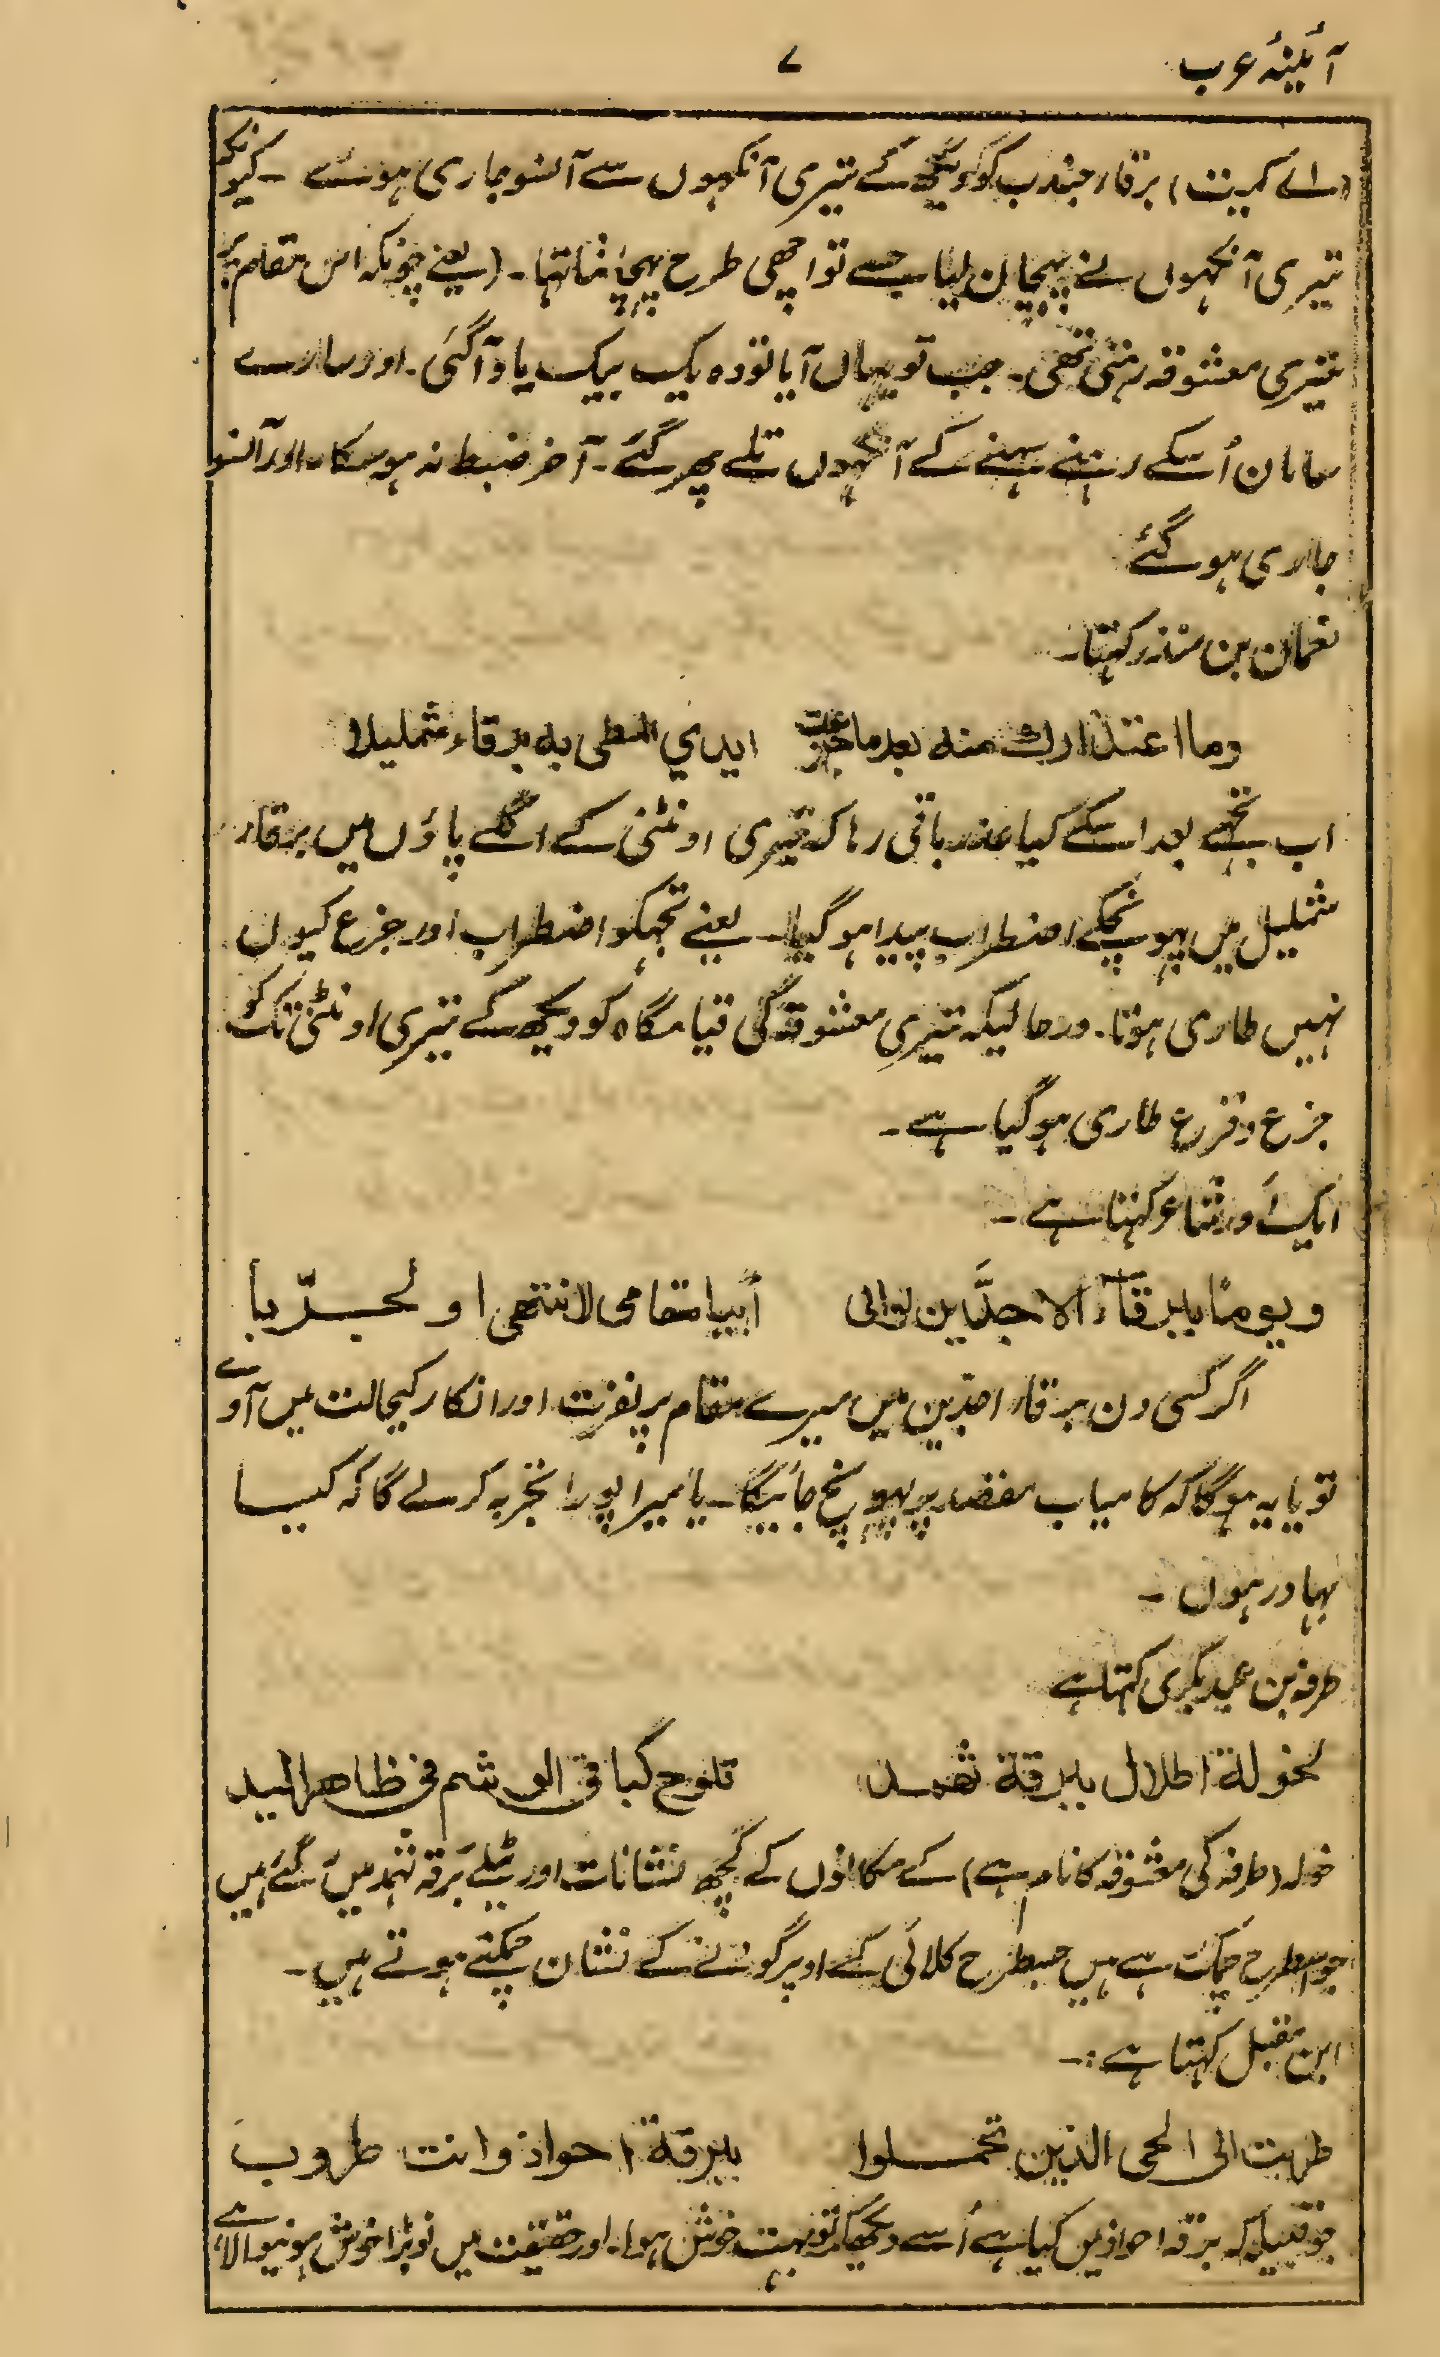 آئینۂ عرب
۷
(اے کمیت) برقاء جندب کو دیکھ کے تیری آنکھوں سے آنسو جاری ہوئے۔ کیونکہ
تیری آنکھوں نے پہچان لیا جسے تو اچھی طرح پہچانتا تھا۔ (یعنے چونکہ اس مقام پر
تیری معشوقہ رہتی تھی۔ جب تو یہاں آیا تو وہ یک بیک یاد آگئی۔ اور سارے
سامان اُسکے رہنے سہنے کے آنکھوں تلے پھر گئے۔ آخر ضبط نہ ہوسکا۔ اور آنسو
جاری ہو گئے
نعمان بن منذر کہتا۔
وما اعتذارك منه بعد ما جزعت ایدي المطی به برقاء شملیلا
اب تجھے بعد اسکے کیا عذر باقی رہا کہ تیری اونٹنی کے اگلے پاؤں میں برقاء
شملیل میں پہونچکے اضطراب پیدا ہو گیا۔ یعنے تجھکو اضطراب اور جزع کیوں
نہیں طاری ہوتا۔ درحالیکہ تیری معشوقہ کی قیامگاہ کو دیکھ کے تیری اونٹنی تک کو
جزع و فزع طاری ہو گیا ہے۔
ایک اور شاعر کہتا ہے۔
ویومًا ببرقآء الاجدَّین لو اتی أبیا مقامی لانتھی او لجرّبا
اگر کسی دن برقاء اجدّین میں میرے مقام پر نفرت اور انکار کیحالت میں آوے
تو یا یہ ہوگا کہ کامیاب مقصد پر پہونچ جائیگا۔ یا میرا پورا تجربہ کرلے گا کہ کیسا
بہادر ہوں۔
طرفہ بن عبد بکری کہتا ہے
لخولة اطلال ببرقة ثهمد تلوح کباقی الوشم فی ظاهر الید
خولہ (طرفہ کی معشوقہ کا نام ہے) کے مکانوں کے کچھ نشانات اور ٹیلے برقہ ثہمد میں رہ گئے ہیں
جو اسطرح چمک رہے ہیں جسطرح کلائی کے اوپر گودنے کے نشان چمکتے ہوتے ہیں۔
ابن مقبل کہتا ہے:۔
طربت الی الحی الذین تحملوا ببرقة احواذ وانت طروب
جو قبیلہ کہ برقہ احواذ میں گیا ہے اُسے دیکھکر تو بہت خوش ہوا۔ اور حقیقت میں تو بڑا خوش ہونیوالا ہے